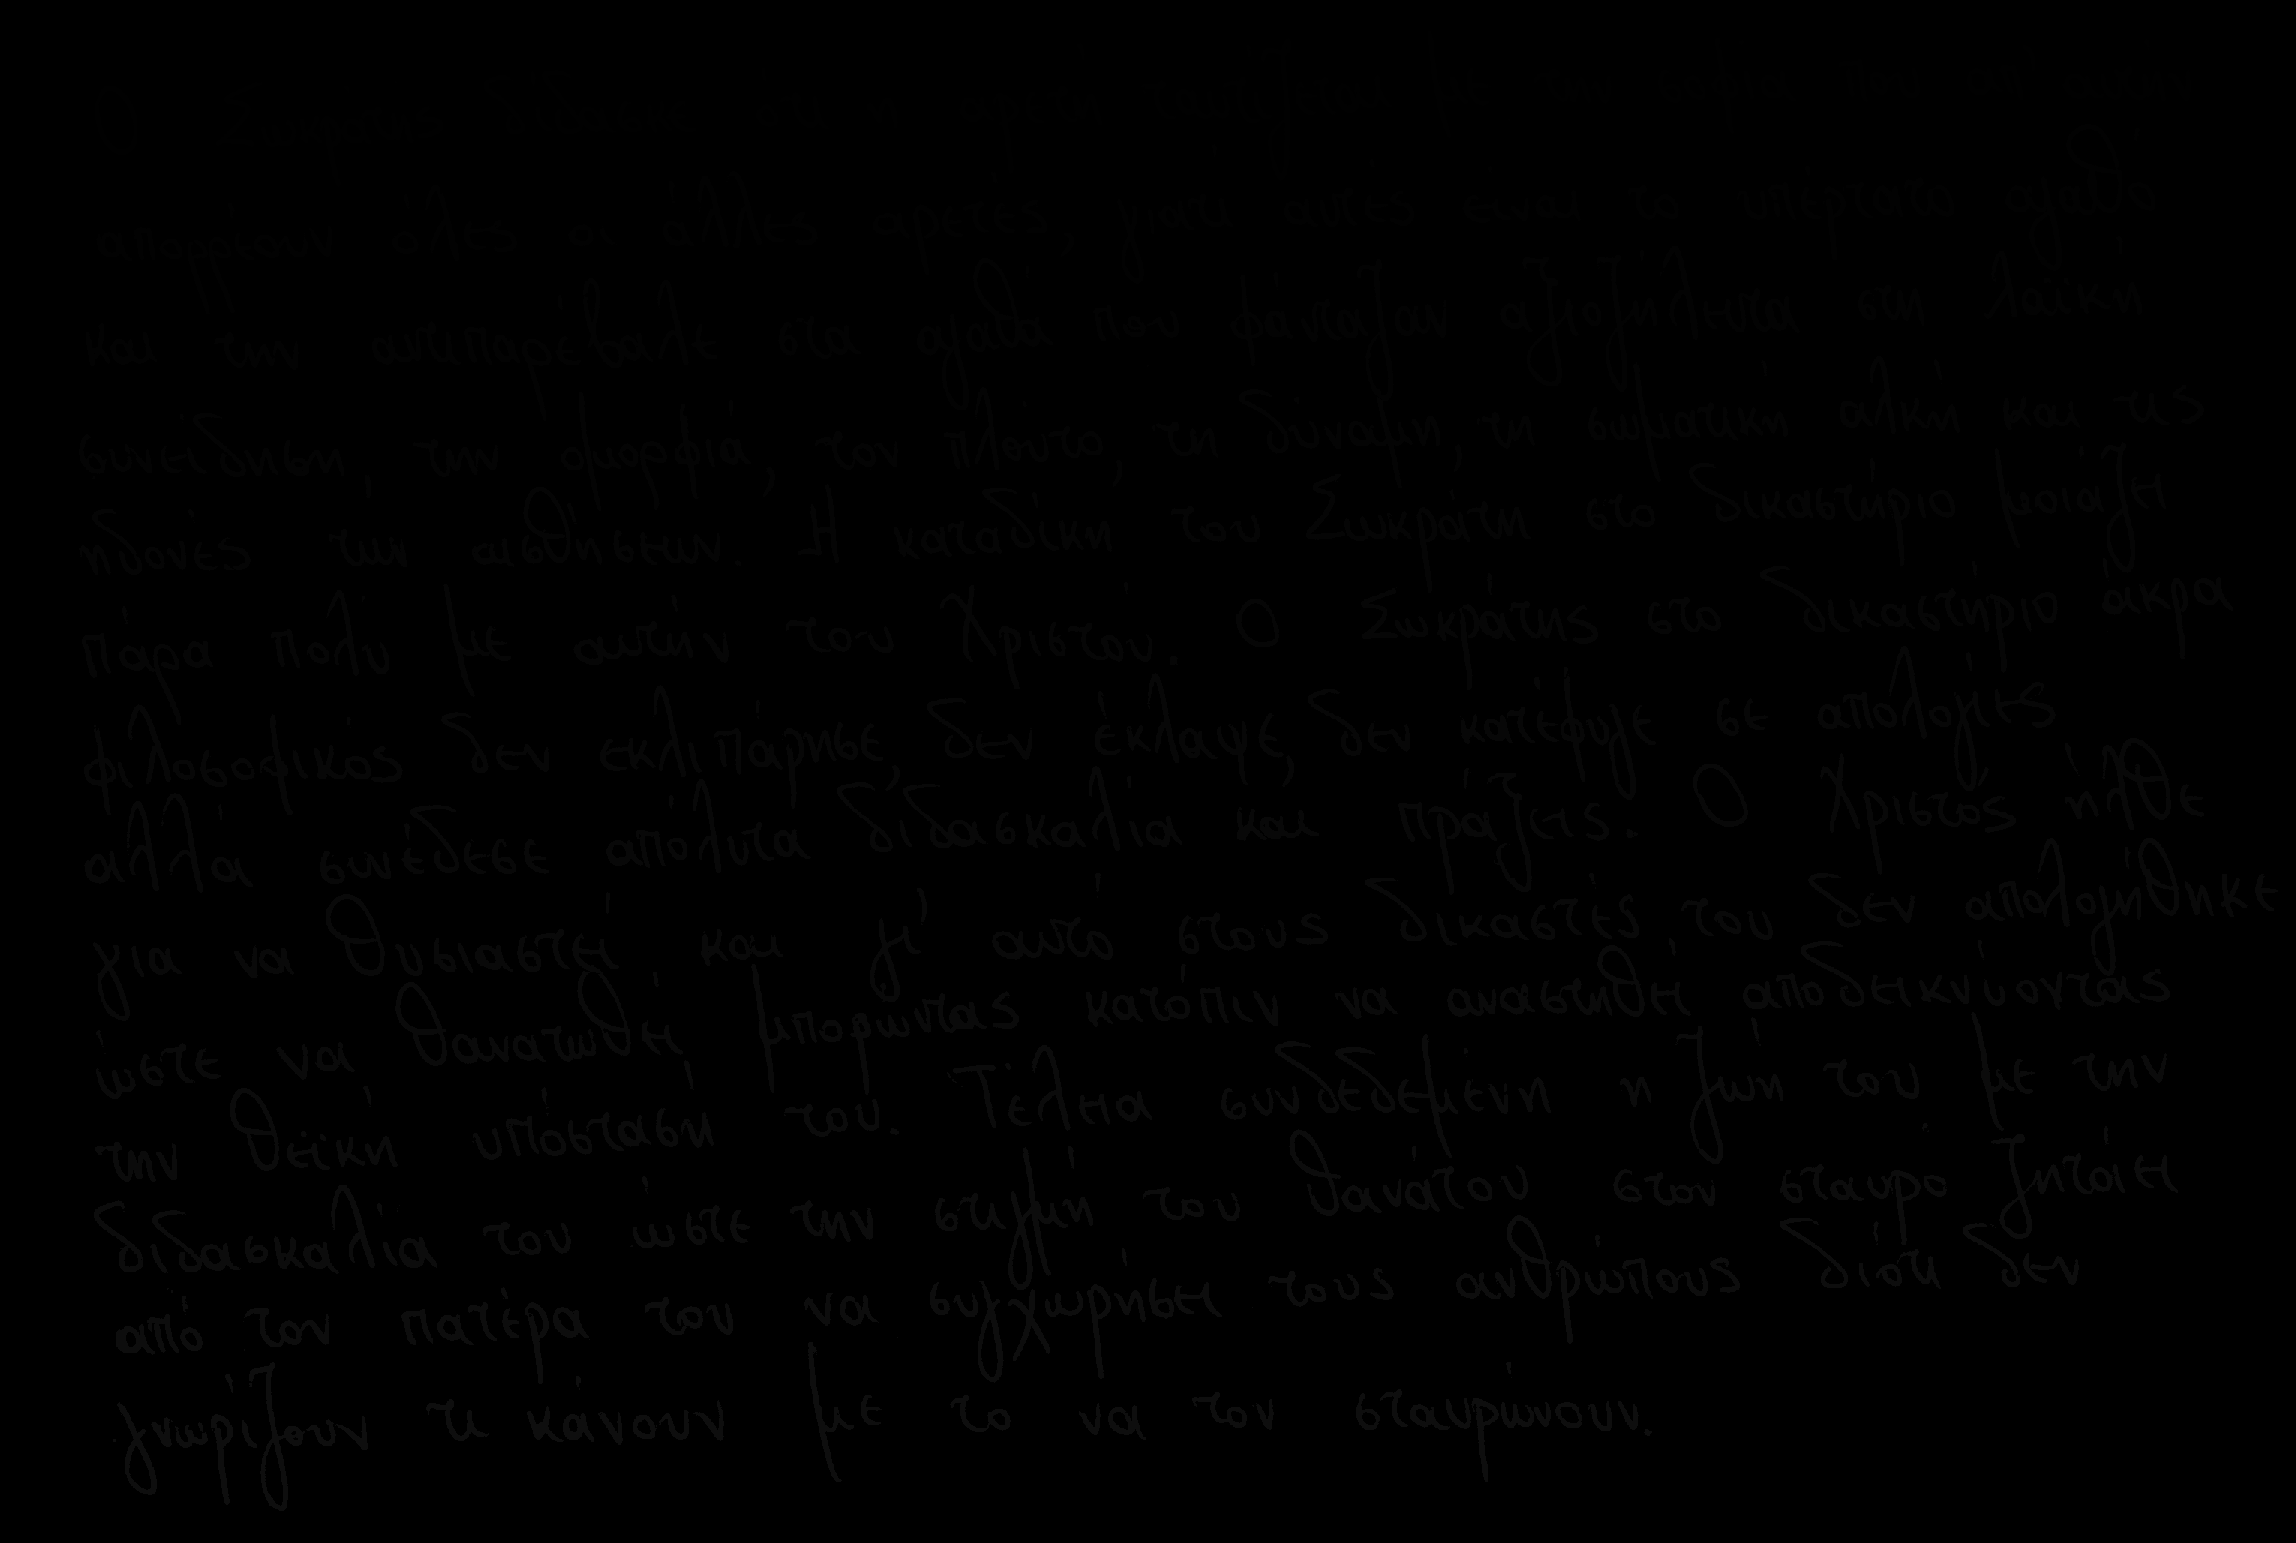 Ο Σωκράτης δίδασκε ότι η αρετή ταυτίζεται με την σοφία που απ' αυτήν
απορρέουν όλες οι άλλες αρετές, γιατί αυτές είναι το υπέρτατο αγαθό
και την αντιπαρέβαλε στα αγαθά που φάνταζαν αξιοζήλευτα στη λαϊκή
συνείδηση, την ομορφιά, τον πλούτο, τη δύναμη, τη σωματική αλκή και τις
ηδονές των αισθήσεων. Η καταδίκη του Σωκράτη στο δικαστήριο μοιάζει
πάρα πολύ με αυτήν του Χριστού. Ο Σωκράτης στο δικαστήριο άκρα
φιλοσοφικός δεν εκλιπάρησε, δεν έκλαψε, δεν κατέφυγε σε απολογίες
αλλά συνέδεσε απόλυτα διδασκαλία και πράξεις. Ο Χριστός ήλθε
για να θυσιαστεί και γι' αυτό στους δικαστές του δεν απολογήθηκε
ώστε να θανατωθεί, μπορώντας κατόπιν να αναστηθεί αποδεικνύοντας
την θεϊκή υπόσταση του. Τέλεια συνδεδεμένη η ζωή του με την
διδασκαλία του ώστε την στιγμή του θανάτου στον σταυρό ζητάει
από τον πατέρα του να συγχωρήσει τους ανθρώπους διότι δεν
γνωρίζουν τι κάνουν με το να τον σταυρώνουν.